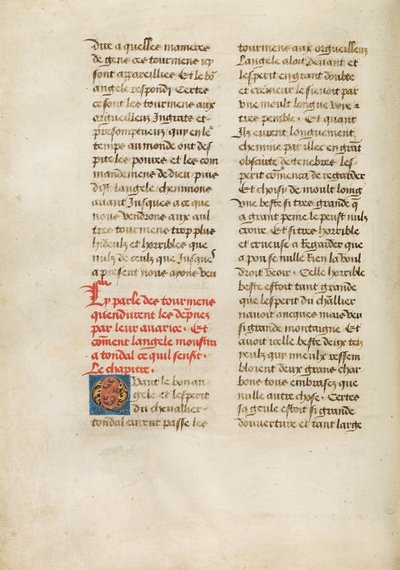 dire a quelles manieres
de gens ces tourmens icy
sont appareillies Et le bō
angele respondy Certes
ce sont les tourmens aux
orguelleux Ingrats et
presomptueux qui en le
temps au monde ont des
pite les poures et les com
mandemens de dieu puis
dist langele cheminons
auant Jusques a ce que
nous vendrons aux aul
tres tourmens trop plus
hideulx et horribles que
nulz de ceulx que Jusques
a present nous ayons veu
Cy parle des tourmens
quendurent les dēpnes
par leur auarice. Et
cōment langele monstra
a tondal ce quil sensit.
Le chapitre.
Quant le bon an
gele et lesperit
du cheuallier
tondal eurent passe les
tourmens aux orgueilleux
Langele aloit deuant et
lesperit en grant doubte
et cremeur le sieuoit par
vne moult longue voye et
tres penible. Et quant
Ilz eurent longuement
chemine par illec en grāt
obscurte de tenebres les
perit cōmenca de regarder
Et choisi de moult loing
vne beste si tres grande q̄
a grant peine le peust nulz
croire Et si tres horrible
et crueuse a Regarder que
a pou se nulle Rien la voul
droit veoir. Celle horrible
beste estoit tant grande
que lesperit du chlliēr
nauoit oncques mais veu
si grande montaigne Et
auoit icelle beste deux tels
yeulz qui mieulx ressem
bloient deux grans char
bons tous embrasez que
nulle autre chose. Certes
sa geule estoit si grande
douuerture et tant large